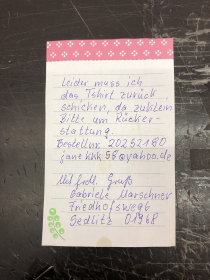 Leider muss ich
das Tshirt zurück
schicken, da zu klein
Bitte um Rücker-
stattung.
Bestellnr. 20252180
Mit frdl. Gruß
Gabriele Marschner
Friedhofsweg 6
Sedlitz 01968